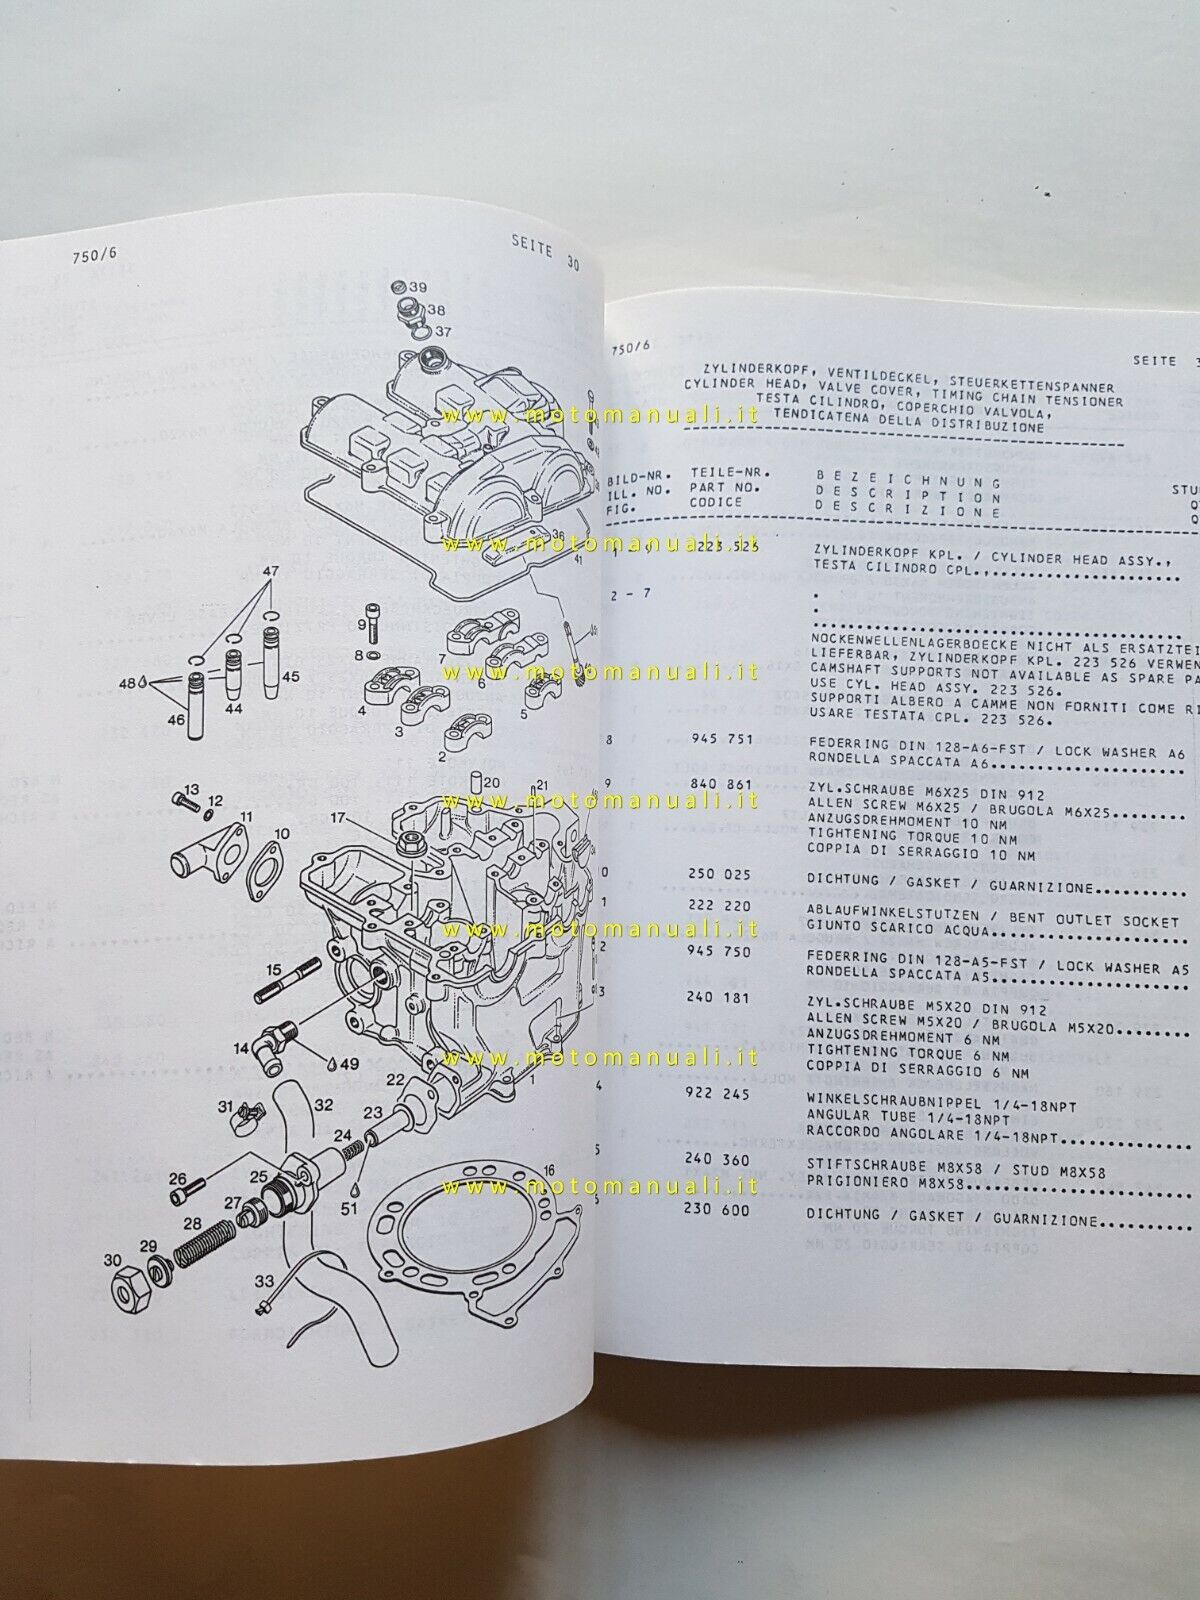 750/6
SEITE 30
39
38
37
36
41
47
9
8
7
6
5
4
3
2
48
46
44
45
20
21
17
13
12
11
10
15
14
49
1
22
23
24
31
32
26
25
27
51
16
28
29
30
33
www.motomanuali.it
www.motomanuali.it
www.motomanuali.it
www.motomanuali.it
www.motomanuali.it
www.motomanuali.it
www.motomanuali.it
750/6
SEITE
ZYLINDERKOPF, VENTILDECKEL, STEUERKETTENSPANNER
CYLINDER HEAD, VALVE COVER, TIMING CHAIN TENSIONER
TESTA CILINDRO, COPERCHIO VALVOLA,
TENDICATENA DELLA DISTRIBUZIONE
BILD-NR. TEILE-NR. B E Z E I C H N U N G
ILL. NO. PART NO. D E S C R I P T I O N
FIG. CODICE D E S C R I Z I O N E
1 - 9 223 526 ZYLINDERKOPF KPL. / CYLINDER HEAD ASSY.,
TESTA CILINDRO CPL.,......................
2 - 7
NOCKENWELLENLAGERBOECKE NICHT ALS
LIEFERBAR, ZYLINDERKOPF KPL. 223 526
CAMSHAFT SUPPORTS NOT AVAILABLE AS SPARE
USE CYL. HEAD ASSY. 223 526.
SUPPORTI ALBERO A CAMME NON FORNITI COME
USARE TESTATA CPL. 223 526.
8 945 751 FEDERRING DIN 128-A6-FST / LOCK WASHER A6
RONDELLA SPACCATA A6......................
9 840 861 ZYL.SCHRAUBE M6X25 DIN 912
ALLEN SCREW M6X25 / BRUGOLA M6X25........
ANZUGSDREHMOMENT 10 NM
TIGHTENING TORQUE 10 NM
COPPIA DI SERRAGGIO 10 NM
0 250 025 DICHTUNG / GASKET / GUARNIZIONE..........
1 222 220 ABLAUFWINKELSTUTZEN / BENT OUTLET SOCKET
GIUNTO SCARICO ACQUA......................
2 945 750 FEDERRING DIN 128-A5-FST / LOCK WASHER A5
RONDELLA SPACCATA A5......................
3 240 181 ZYL.SCHRAUBE M5X20 DIN 912
ALLEN SCREW M5X20 / BRUGOLA M5X20........
ANZUGSDREHMOMENT 6 NM
TIGHTENING TORQUE 6 NM
COPPIA DI SERRAGGIO 6 NM
4 922 245 WINKELSCHRAUBNIPPEL 1/4-18NPT
ANGULAR TUBE 1/4-18NPT
RACCORDO ANGOLARE 1/4-18NPT..............
5 240 360 STIFTSCHRAUBE M8X58 / STUD M8X58
PRIGIONIERO M8X58........................
230 600 DICHTUNG / GASKET / GUARNIZIONE..........